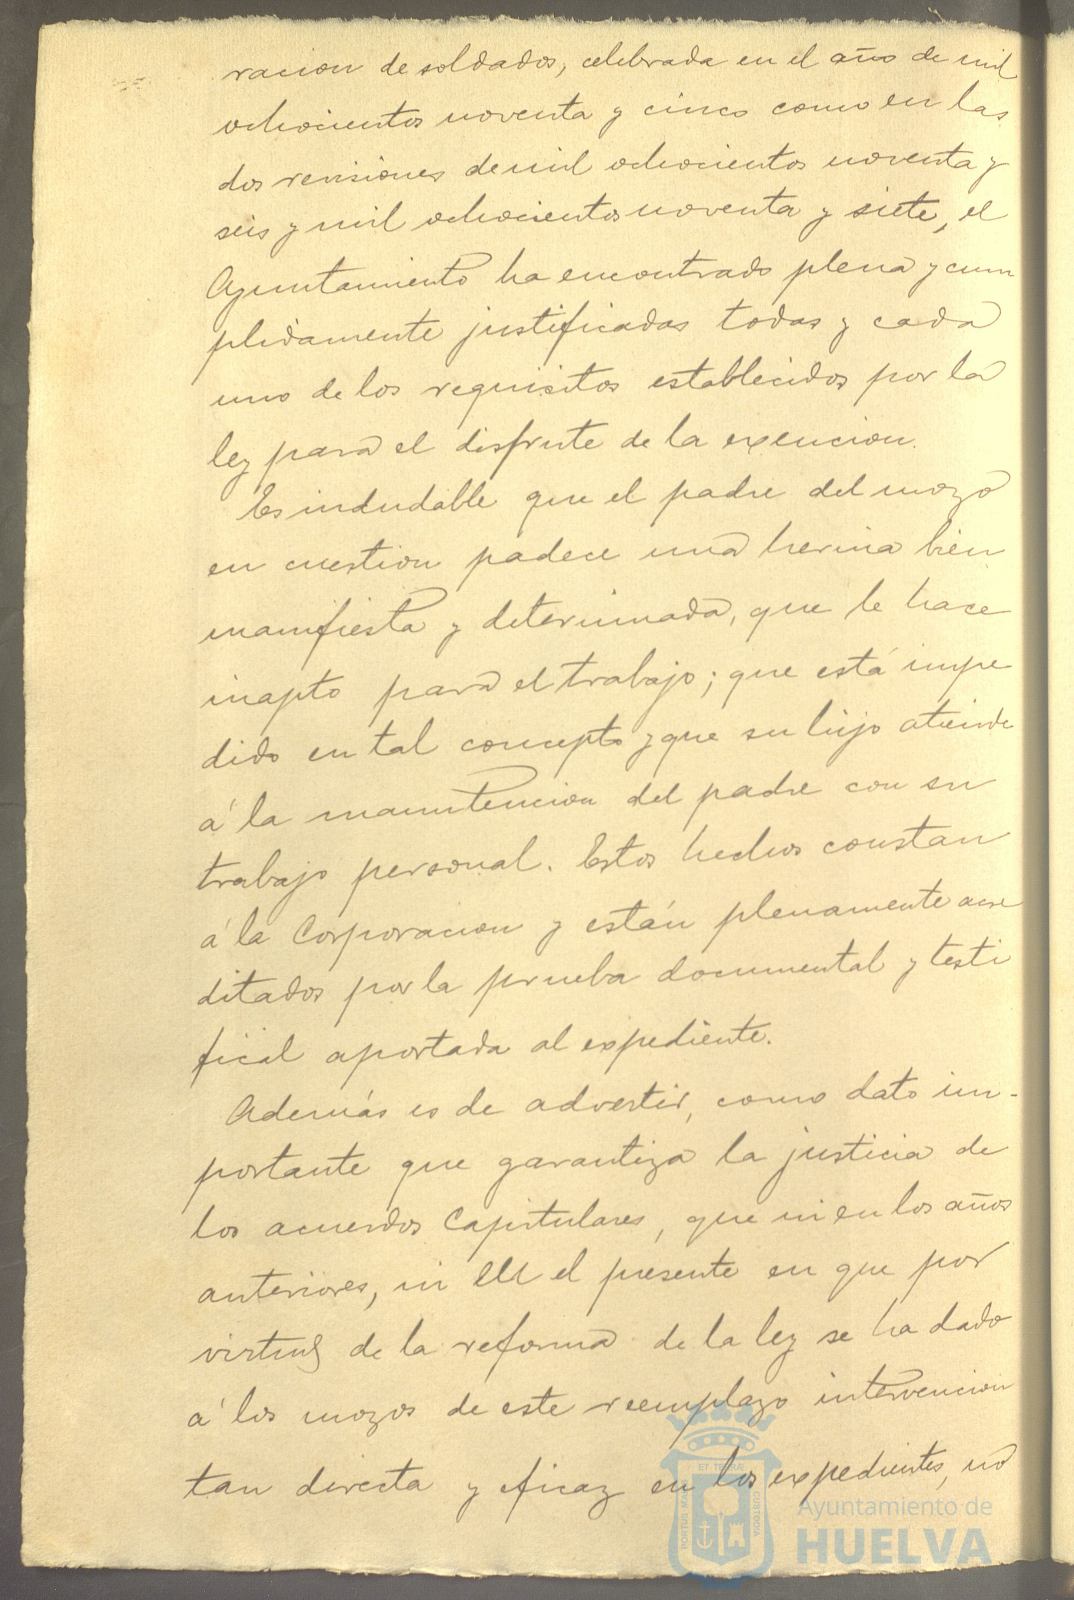 racion de soldados, celebrada en el año de mil
ochocientos noventa y cinco como en las
dos revisiones de mil ochocientos noventa y
seis y mil ochocientos noventa y siete, el
Ayuntamiento ha encontrado plena y cum
plidamente justificadas todas y cada
uno de los requisitos establecidos por la
ley para el disfrute de la exencion.
Es indudable que el padre del mozo
en cuestion padece una hernia bien
manifiesta y determinada, que le hace
inapto para el trabajo; que está impe
dido en tal concepto y que su hijo atiende
á la manutencion del padre con su
trabajo personal. Estos hechos constan
á la Corporacion y están plenamente acre
ditados por la prueba documental y testi
fical aportada al expediente.
Además es de advertir, como dato im-
portante que garantiza la justicia de
los acuerdos Capitulares, que ni en los años
anteriores, ni en el presente en que por
virtud de la reforma de la ley se ha dado
á los mozos de este reemplazo intervencion
tan directa y eficaz en los expedientes, no
Ayuntamiento de
HUELVA
ET TERRÆ
PORTUS MARIS
CUSTODIA